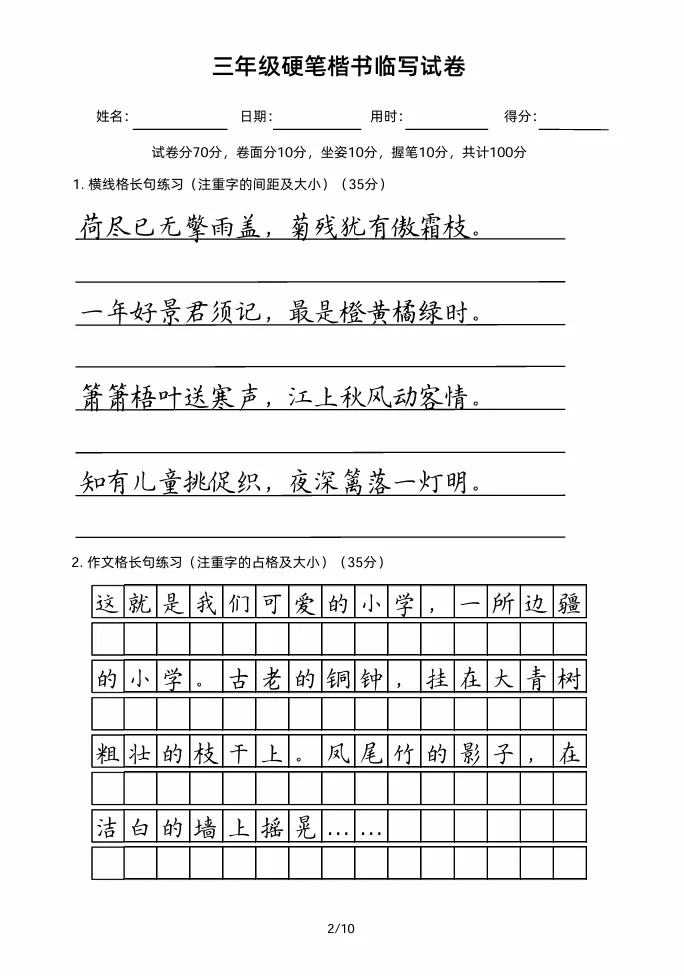 三年级硬笔楷书临写试卷
姓名： 日期： 用时： 得分：
试卷分70分，卷面分10分，坐姿10分，握笔10分，共计100分
1. 横线格长句练习（注重字的间距及大小）（35分）
荷尽已无擎雨盖，菊残犹有傲霜枝。
一年好景君须记，最是橙黄橘绿时。
箫箫梧叶送寒声，江上秋风动客情。
知有儿童挑促织，夜深篱落一灯明。
2. 作文格长句练习（注重字的占格及大小）（35分）
这就是我们可爱的小学，一所边疆
的小学。古老的铜钟，挂在大青树
粗壮的枝干上。凤尾竹的影子，在
洁白的墙上摇晃……
2/10